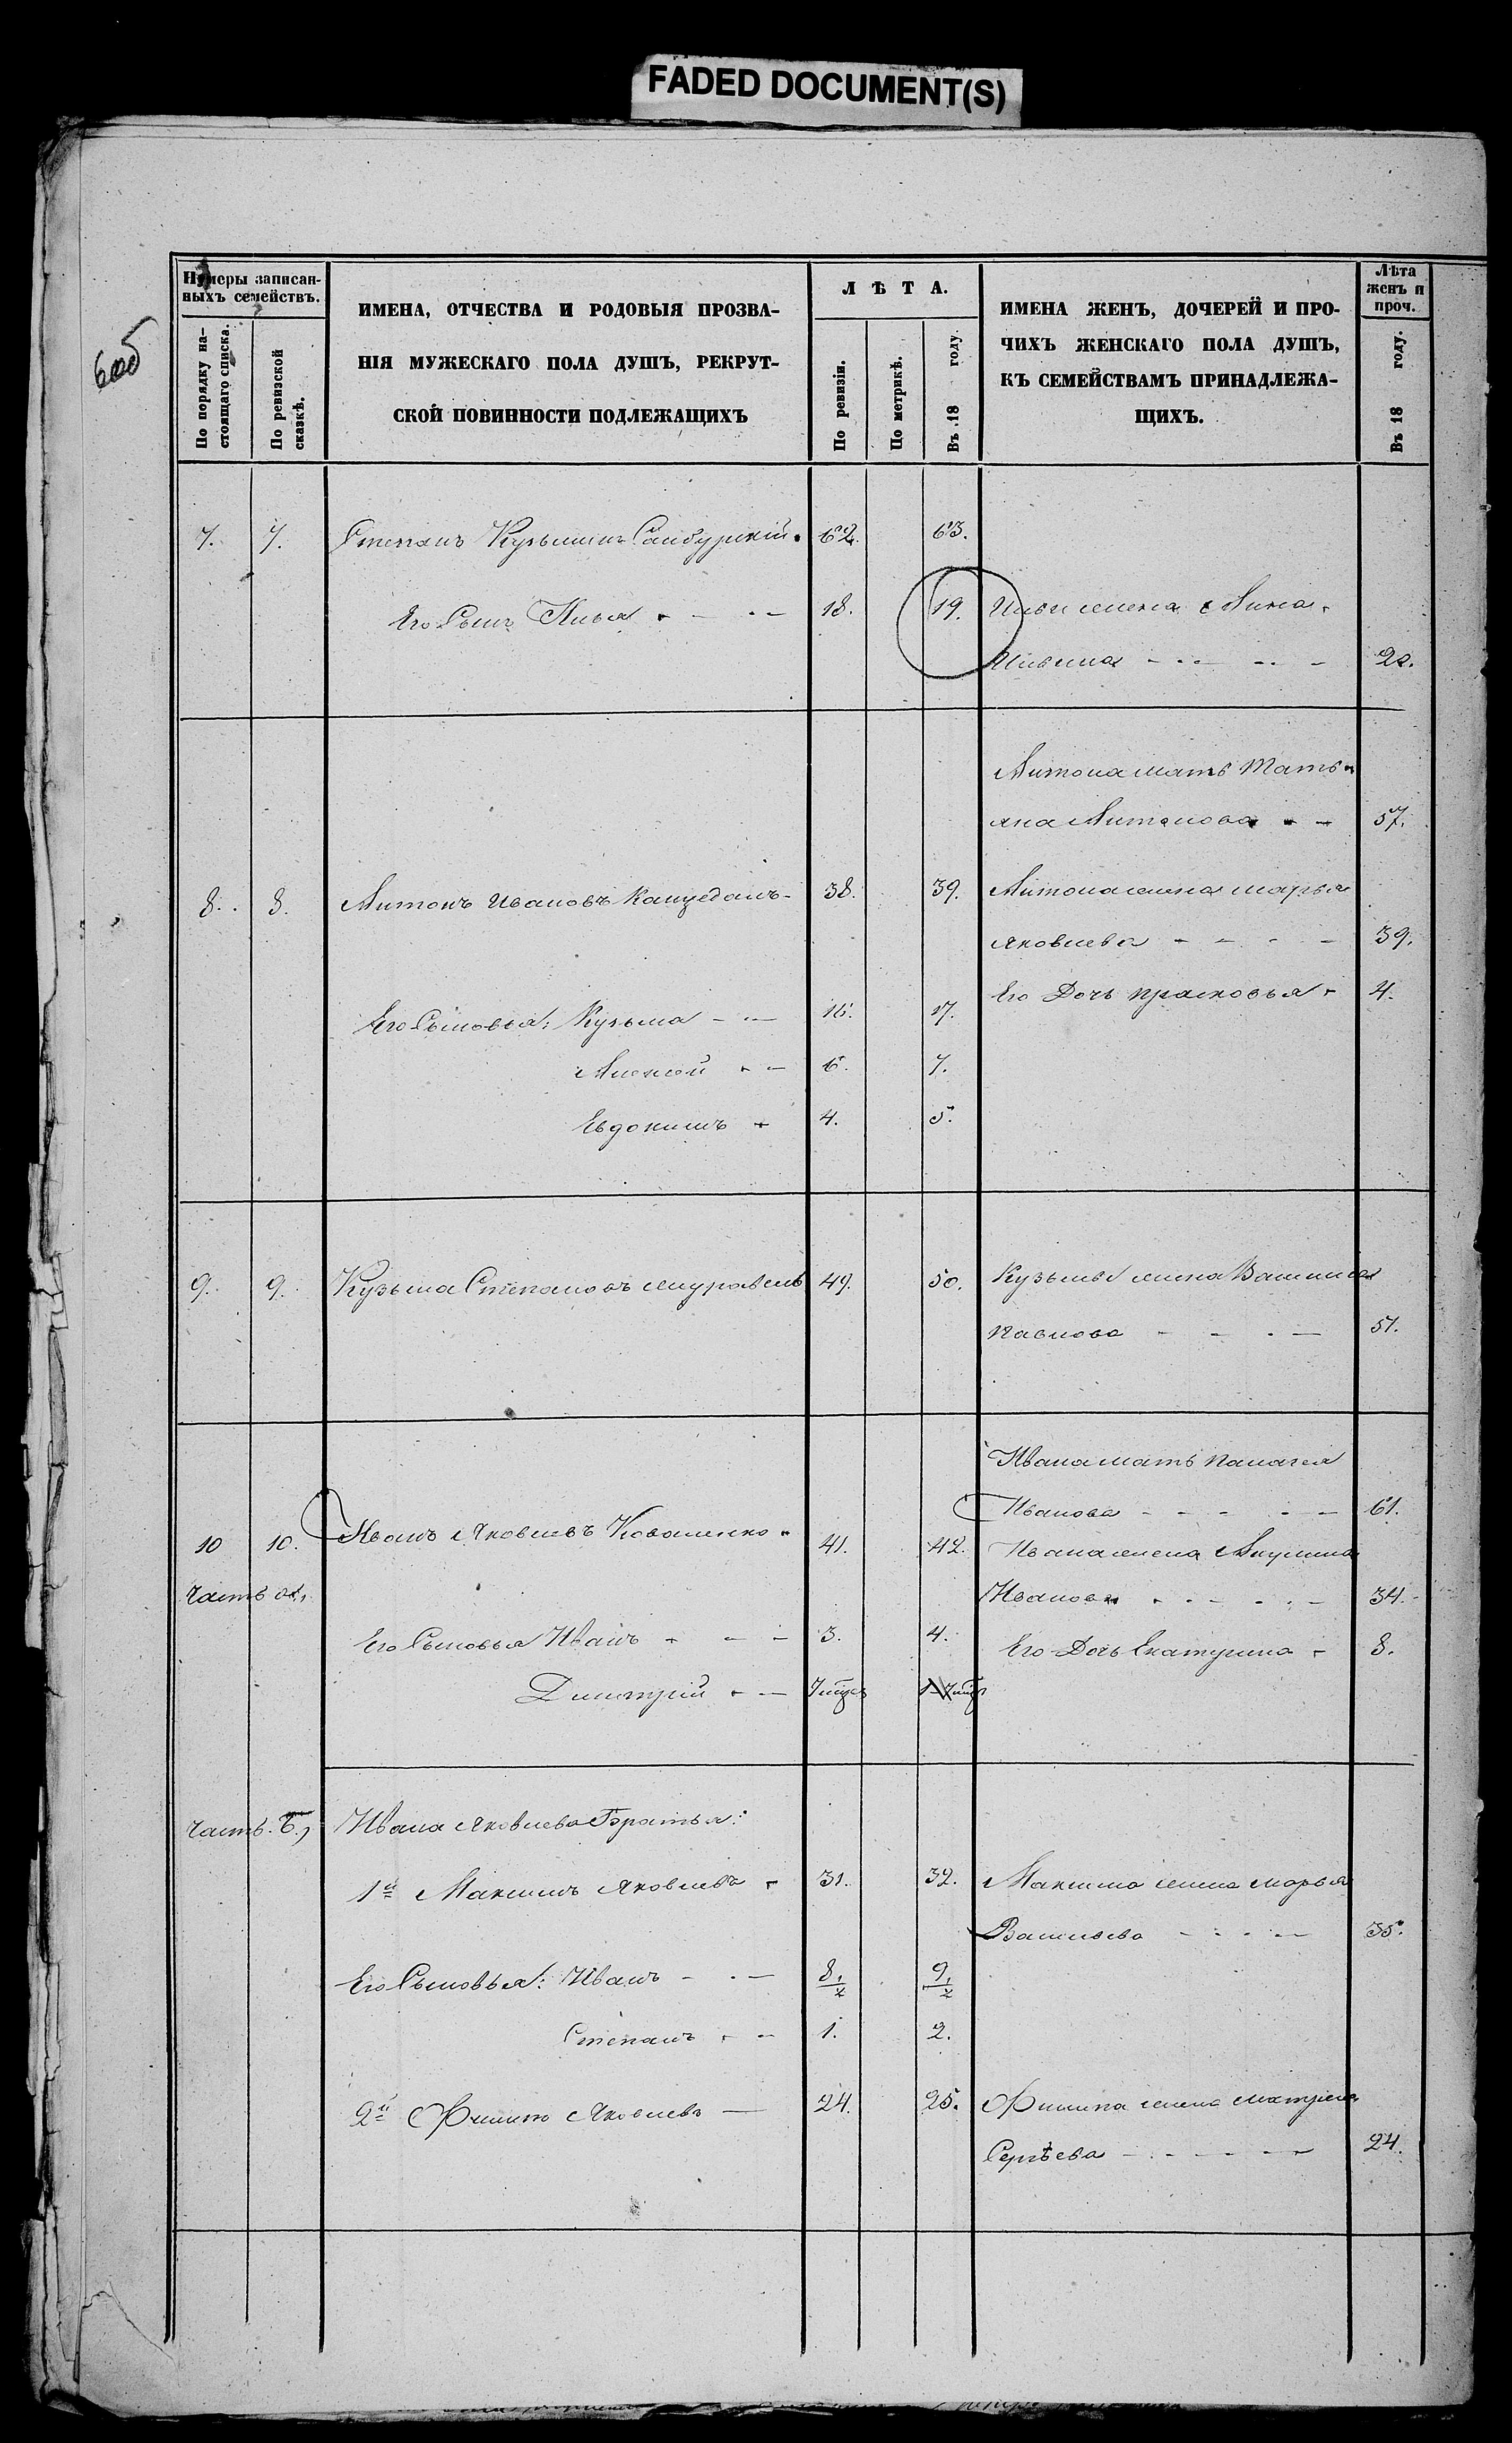 FADED DOCUMENT(S)
60об
Нумеры записан-
ныхъ семействъ.
По порядку на-
стоящаго списка.
По ревизской
сказкѣ.
ИМЕНА, ОТЧЕСТВА И РОДОВЫЯ ПРОЗВА-
НІЯ МУЖЕСКАГО ПОЛА ДУШЪ, РЕКРУТ-
СКОЙ ПОВИННОСТИ ПОДЛЕЖАЩИХЪ
ЛѢТА.
По ревизіи.
По метрикѣ.
Въ 18 году.
ИМЕНА ЖЕНЪ, ДОЧЕРЕЙ И ПРО-
ЧИХЪ ЖЕНСКАГО ПОЛА ДУШЪ,
КЪ СЕМЕЙСТВАМЪ ПРИНАДЛЕЖА-
ЩИХЪ.
Лѣта
женъ и
проч.
Въ 18 году.
7. 7. Степанъ Кузьминъ 62. 63.
Его Сынъ Илья 18. 19. Ильи жена Анна
Ильина 20.
Антона мать Тать-
яна Антонова 57.
8. 8. Антонъ Ивановъ 38. 39. Антона жена Марья
Яковлева 39.
Его Дочь Прасковья 4.
Его Сыновья: Кузьма 16. 17.
Алексей 6. 7.
Евдокимъ 4. 5.
9. 9. Кузьма Степановъ Журавель 49. 50. Кузьмы жена Василиса
Павлова 51.
Ивана мать Палагея
Иванова 61.
10 10. Иванъ Яковлевъ Коваленко 41. 42. Ивана жена Акулина
часть а.,
Иванова 34.
Его Сыновья Иванъ 3. 4. Его Дочь Екатерина 8.
Димитрій
часть. б., Ивана Яковлева Братья:
1й Максимъ Яковлевъ 31. 32. Максима жена Марья
Васильева 35.
Его Сыновья: Иванъ 8. 9.
Степанъ 1. 2.
2й Филипъ Яковлевъ 24. 25. Филипа жена Матрена
Сергѣева 24.